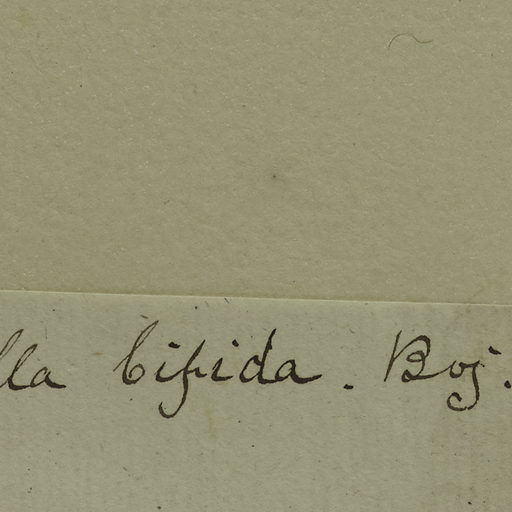 lla bifida. Boj.